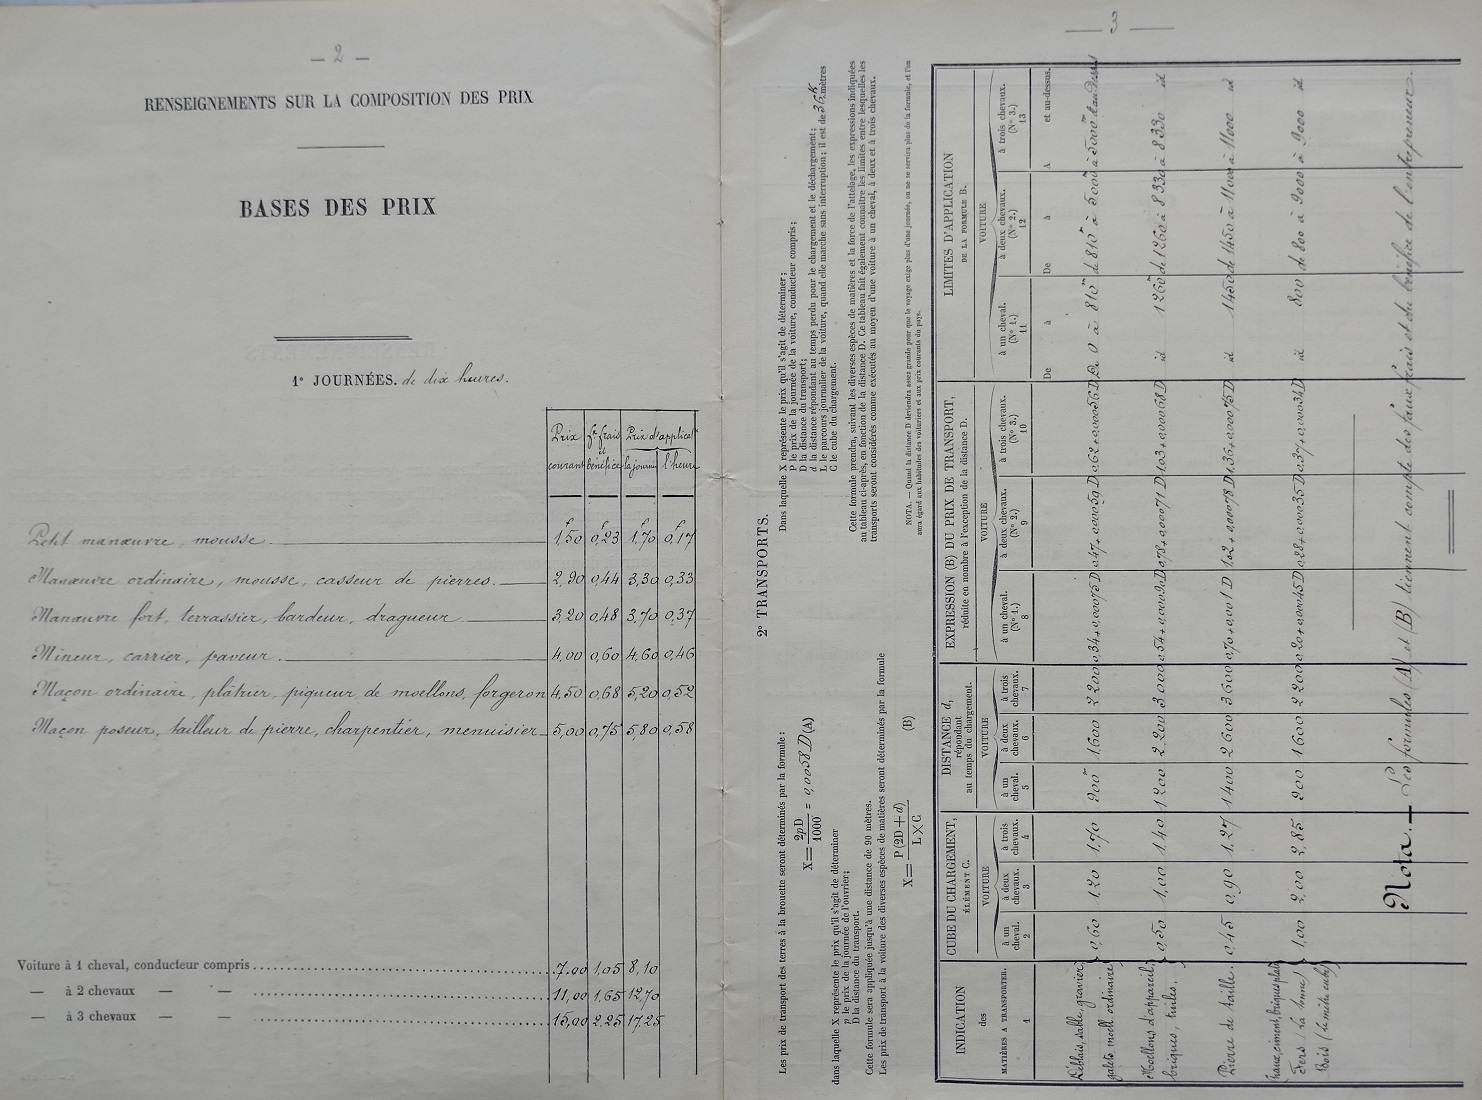 — 2 —
RENSEIGNEMENTS SUR LA COMPOSITION DES PRIX
BASES DES PRIX
1° JOURNÉES. de dix heures.
Prix courant | fx frais et bénéfice | Prix d'applicat. la journée | l'heure
Petit manœuvre, mousse 1,50 0,23 1,70 0,17
Manœuvre ordinaire, mousse, casseur de pierres. 2,90 0,44 3,30 0,33
Manœuvre fort, terrassier, bardeur, dragueur 3,20 0,48 3,70 0,37
Mineur, carrier, paveur. 4,00 0,60 4,60 0,46
Maçon ordinaire, plâtrier, piqueur de moellons, forgeron 4,50 0,68 5,20 0,52
Maçon poseur, tailleur de pierre, charpentier, menuisier 5,00 0,75 5,80 0,58
Voiture à 1 cheval, conducteur compris 7,00 1,05 8,10
— à 2 chevaux — — 11,00 1,65 12,70
— à 3 chevaux — — 15,00 2,25 17,25
— 3 —
2° TRANSPORTS.
Les prix de transport des terres à la brouette seront déterminés par la formule :
X = 2pD / 1000 = 0,0058 D (A)
dans laquelle X représente le prix qu'il s'agit de déterminer
p le prix de la journée de l'ouvrier;
D la distance du transport.
Cette formule sera appliquée jusqu'à une distance de 90 mètres.
Les prix de transport à la voiture des diverses espèces de matières seront déterminés par la formule
X = P (2D + d) / L × C (B)
Dans laquelle X représente le prix qu'il s'agit de déterminer;
P le prix de la journée de la voiture, conducteur compris;
D la distance du transport;
d la distance répondant au temps perdu pour le chargement et le déchargement;
L le parcours journalier de la voiture, quand elle marche sans interruption; il est de 36 K mètres
C le cube du chargement.
Cette formule prendra, suivant les diverses espèces de matières et la force de l'attelage, les expressions indiquées
au tableau ci-après, en fonction de la distance D. Ce tableau fait également connaître les limites entre lesquelles les
transports seront considérés comme exécutés au moyen d'une voiture à un cheval, à deux et à trois chevaux.
NOTA. — Quand la distance D deviendra assez grande pour que le voyage exige plus d'une journée, on ne se servira plus de la formule, et l'on
aura égard aux habitudes des voituriers et aux prix courants du pays.
INDICATION des MATIÈRES A TRANSPORTER. 1
CUBE DU CHARGEMENT, ÉLÉMENT C. VOITURE à un cheval. 2 à deux chevaux. 3 à trois chevaux. 4
DISTANCE d, répondant au temps du chargement. VOITURE à un cheval. 5 à deux chevaux. 6 à trois chevaux. 7
EXPRESSION (B) DU PRIX DE TRANSPORT, réduite en nombre à l'exception de la distance D. VOITURE à un cheval. (N° 1.) 8 à deux chevaux. (N° 2.) 9 à trois chevaux. (N° 3.) 10
LIMITES D'APPLICATION DE LA FORMULE B. VOITURE à un cheval. (N° 1.) 11 à deux chevaux. (N° 2.) 12 à trois chevaux. (N° 3.) 13
De à De à A et au-dessus.
Déblais, sable, gravier, galets, moell. ordinaire 0,60 1,20 1,70 900m 1,600 2 200 0,34+0,00075D 0,47+0,00059D 0,62+0,00056D De 0 à 810m de 810m à 5000m à 5000m et au dessus
Moellons d'appareil, briques, tuiles. 0,50 1,00 1,40 1200 2,200 3 000 0,54+0,00090D 0,78+0,00071D 1,03+0,00068D id 1260m de 1260 à 8330 à 8330 id
Pierre de taille. 0,45 0,90 1,27 1400 2600 3600 0,70+0,001 D 1,02+0,00078D 1,36+0,00075D id 1450 de 1450 à 11000 à 11000 id
Chaux, ciment, brique, plâtre, Fers (la tonne) Bois (le mètre cube) 1,00 2,00 2,85 900 1600 2 200 0,20+0,00045D 0,28+0,00035D 0,37+0,00034D id 800 de 800 à 9000 à 9000 id
Nota. — Les formules (A) et (B) tiennent compte des faux frais et du bénéfice de l'entrepreneur.